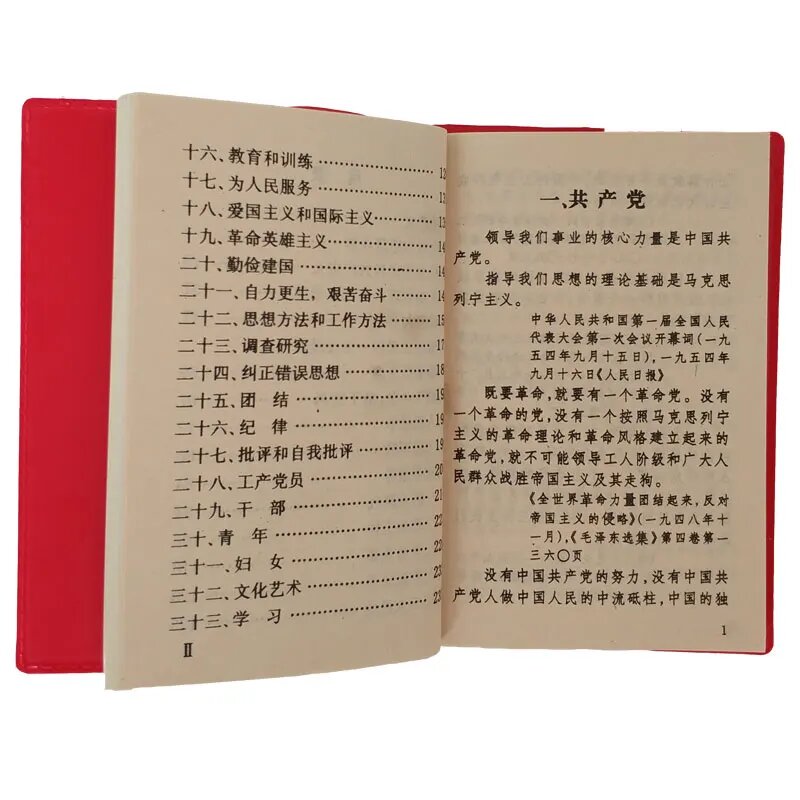 十六、教育和训练……………12
十七、为人民服务……………13
十八、爱国主义和国际主义……13
十九、革命英雄主义……………14
二十、勤俭建国………………14
二十一、自力更生，艰苦奋斗……14
二十二、思想方法和工作方法……15
二十三、调查研究……………17
二十四、纠正错误思想…………18
二十五、团　结………………19
二十六、纪　律………………19
二十七、批评和自我批评………19
二十八、工产党员……………20
二十九、干　部………………21
三十、青　年…………………22
三十一、妇　女………………22
三十二、文化艺术……………23
三十三、学　习………………23
Ⅱ
一、共产党
领导我们事业的核心力量是中国共
产党。
指导我们思想的理论基础是马克思
列宁主义。
中华人民共和国第一届全国人民
代表大会第一次会议开幕词(一九
五四年九月十五日)，一九五四年
九月十六日《人民日报》
既要革命，就要有一个革命党。没有
一个革命的党，没有一个按照马克思列宁
主义的革命理论和革命风格建立起来的
革命党，就不可能领导工人阶级和广大人
民群众战胜帝国主义及其走狗。
《全世界革命力量团结起来，反对
帝国主义的侵略》(一九四八年十
一月)，《毛泽东选集》第四卷第一
三六〇页
没有中国共产党的努力，没有中国共
产党人做中国人民的中流砥柱，中国的独
1